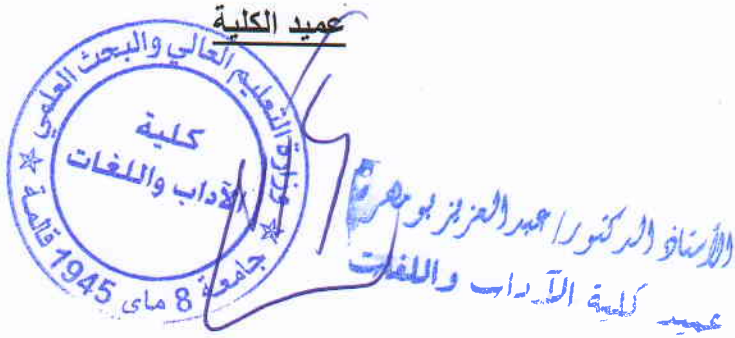 عميد الكلية
وزارة التعليم العالي والبحث العلمي
كلية
الآداب واللغات
جامعة 8 ماي 1945 قالمة
الأستاذ الدكتور/ عبدالعزيز بومهرة
عميد كلية الآداب واللغات